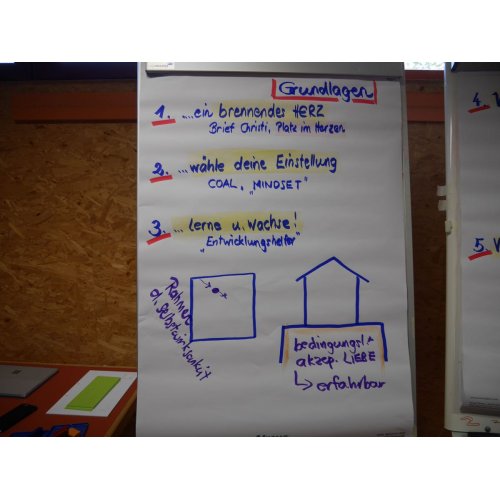 Grundlagen
1. ...ein brennendes HERZ
Brief Christi, Platz im Herzen
2. ...wähle deine Einstellung
COAL, "MINDSET"
3. ... lerne u. wachse!
"Entwicklungshelfer"
Rahmen
d. Selbstwirksamkeit
bedingungsl.
akzep. LIEBE
↳ erfahrbar
4.
5.